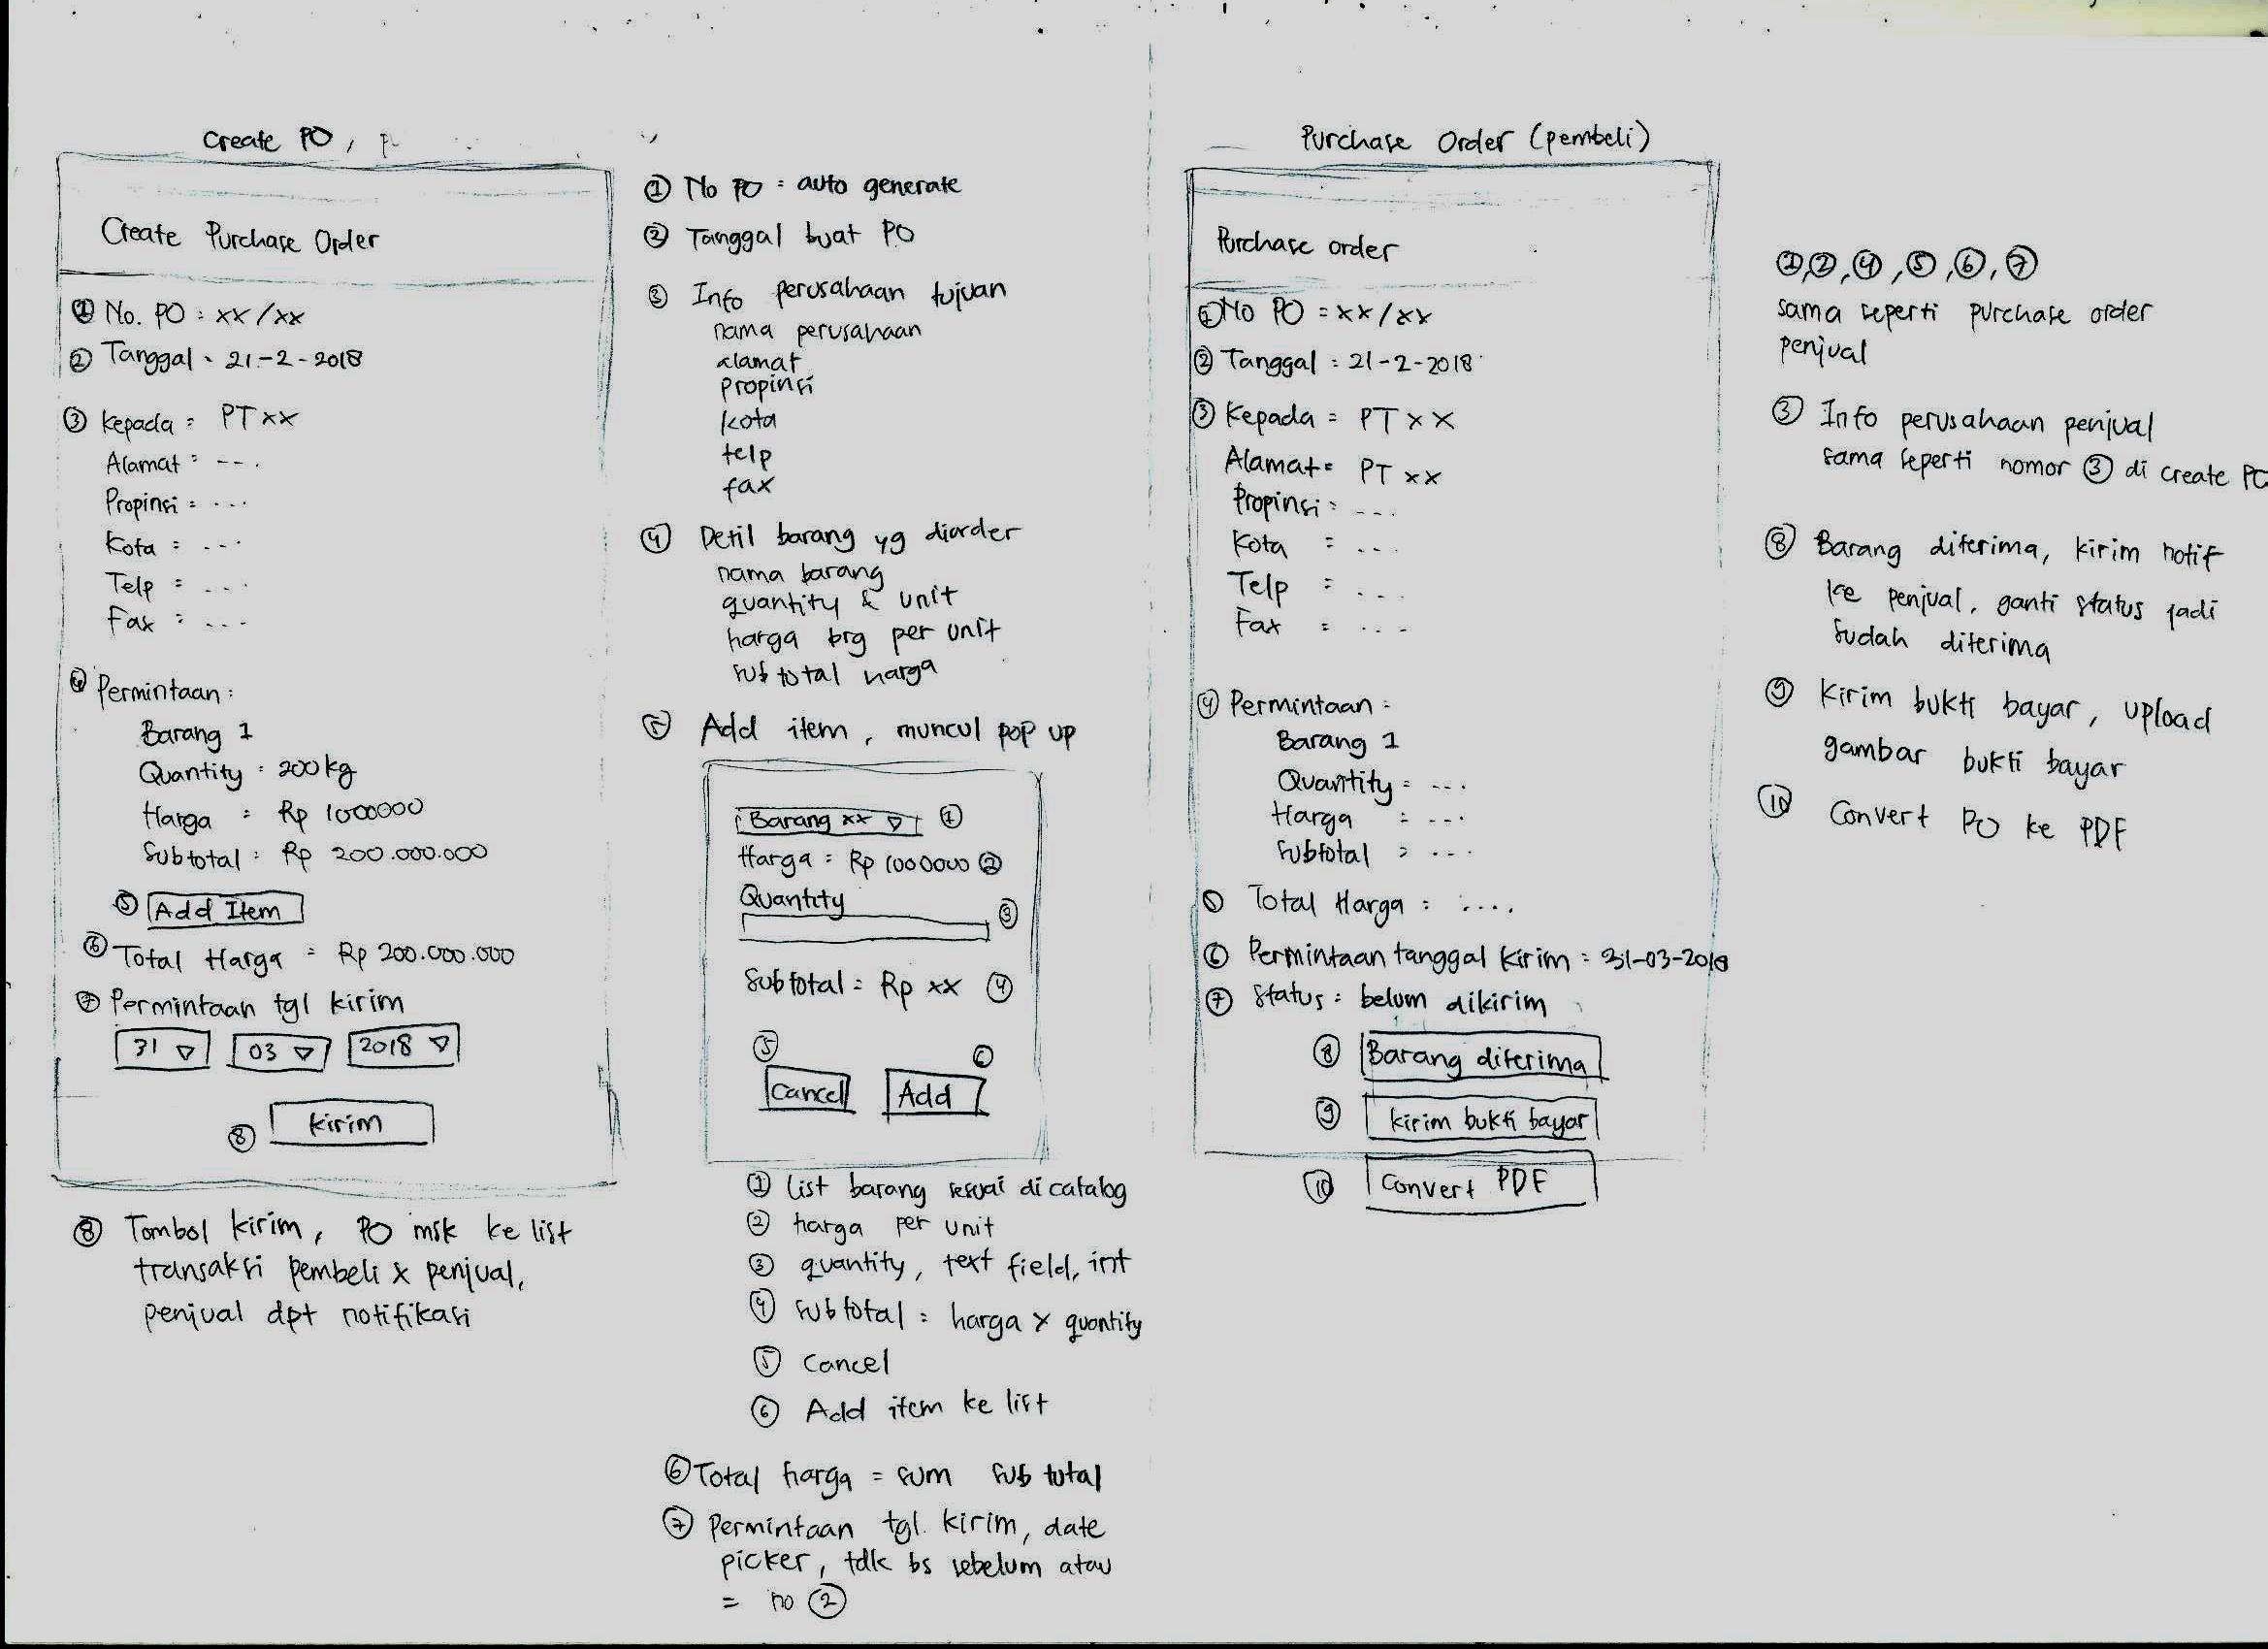 Create PO,
Create Purchase Order
① No. PO : xx/xx
② Tanggal : 21-2-2018
③ Kepada : PT xx
Alamat : ---.
Propinsi : ...
Kota : ...
Telp : ...
Fax : ...
④ Permintaan :
Barang 1
Quantity : 200 kg
Harga : Rp 1000000
Subtotal : Rp 200.000.000
⑤ Add Item
⑥ Total Harga = Rp 200.000.000
⑦ Permintaan tgl kirim
31 ▽ 03 ▽ 2018 ▽
⑧ kirim
⑧ Tombol kirim, PO msk ke list
transaksi pembeli & penjual,
penjual dpt notifikasi
① No PO = auto generate
② Tanggal buat PO
③ Info perusahaan tujuan
nama perusahaan
alamat
propinsi
kota
telp
fax
④ Detil barang yg diorder
nama barang
quantity & unit
harga brg per unit
sub total harga
⑤ Add item, muncul pop up
Barang xx ▽ ①
Harga : Rp 1000000 ②
Quantity
③
Subtotal = Rp xx ④
⑤ ⑥
Cancel Add
① list barang sesuai di catalog
② harga per unit
③ quantity, text field, int
④ subtotal : harga x quantity
⑤ Cancel
⑥ Add item ke list
⑥ Total harga = sum sub total
⑦ Permintaan tgl. kirim, date
picker, tdk bs sebelum atau
= no ②
Purchase Order (pembeli)
Purchase order
① No PO = xx/xx
② Tanggal : 21-2-2018
③ Kepada = PT xx
Alamat = PT xx
Propinsi : ...
Kota : ...
Telp : ...
Fax : ...
④ Permintaan :
Barang 1
Quantity = ...
Harga : ...
Subtotal : ...
⑤ Total Harga : ....
⑥ Permintaan tanggal kirim : 31-03-2018
⑦ Status : belum dikirim
⑧ Barang diterima
⑨ kirim bukti bayar
⑩ Convert PDF
①,②,④,⑤,⑥,⑦
sama seperti purchase order
penjual
③ Info perusahaan penjual
sama seperti nomor ③ di create PO
⑧ Barang diterima, kirim notif
ke penjual, ganti status jadi
sudah diterima
⑨ Kirim bukti bayar, upload
gambar bukti bayar
⑩ Convert PO ke PDF